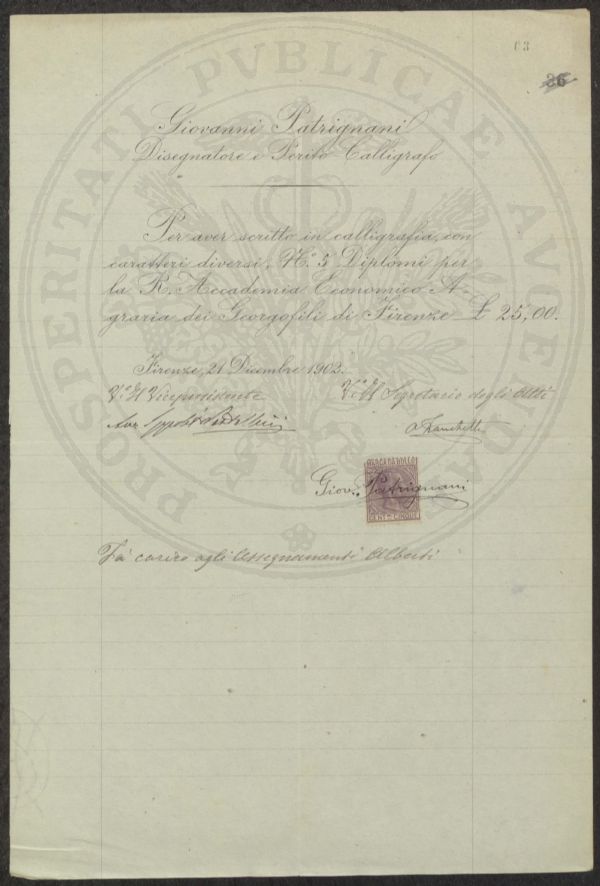 63
26
Giovanni Patrignani
Disegnatore e Perito Calligrafo
Per aver scritto in calligrafia, con
caratteri diversi, N.º 5 Diplomi per
la R. Accademia Economico A-
graria dei Georgofili di Firenze £ 25,00.
Firenze, 21 Dicembre 1902.
V.º Il Vicepresidente
V.º Il Segretario degli Atti
Giov. Patrignani
MARCA DA BOLLO
CENT.MI CINQUE
Fa carico agli Assegnamenti Alberti
PROSPERITATI PVBLICAE AVGENDAE